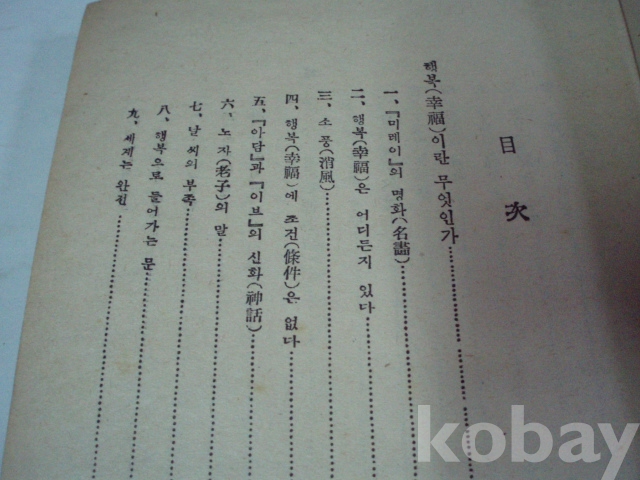 目次
행복(幸福)이란 무엇인가
一、『미레이』의 명화(名畵)
二、행복(幸福)은 어디든지 있다
三、소풍(消風)
四、행복(幸福)에 조건(條件)은 없다
五、『아담』과 『이브』의 신화(神話)
六、노자(老子)의 말
七、날씨의 부족
八、행복으로 들어가는 문
九、세계는 완전
kobay